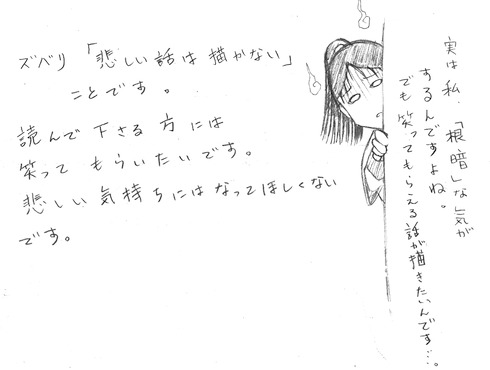 ズバリ「悲しい話は描かない」
ことです。
読んで下さる方には
笑ってもらいたいです。
悲しい気持ちにはなってほしくない
です。
実は私、「根暗」な気が
するんですよね。
でも笑ってもらえる話が描きたいんです…。